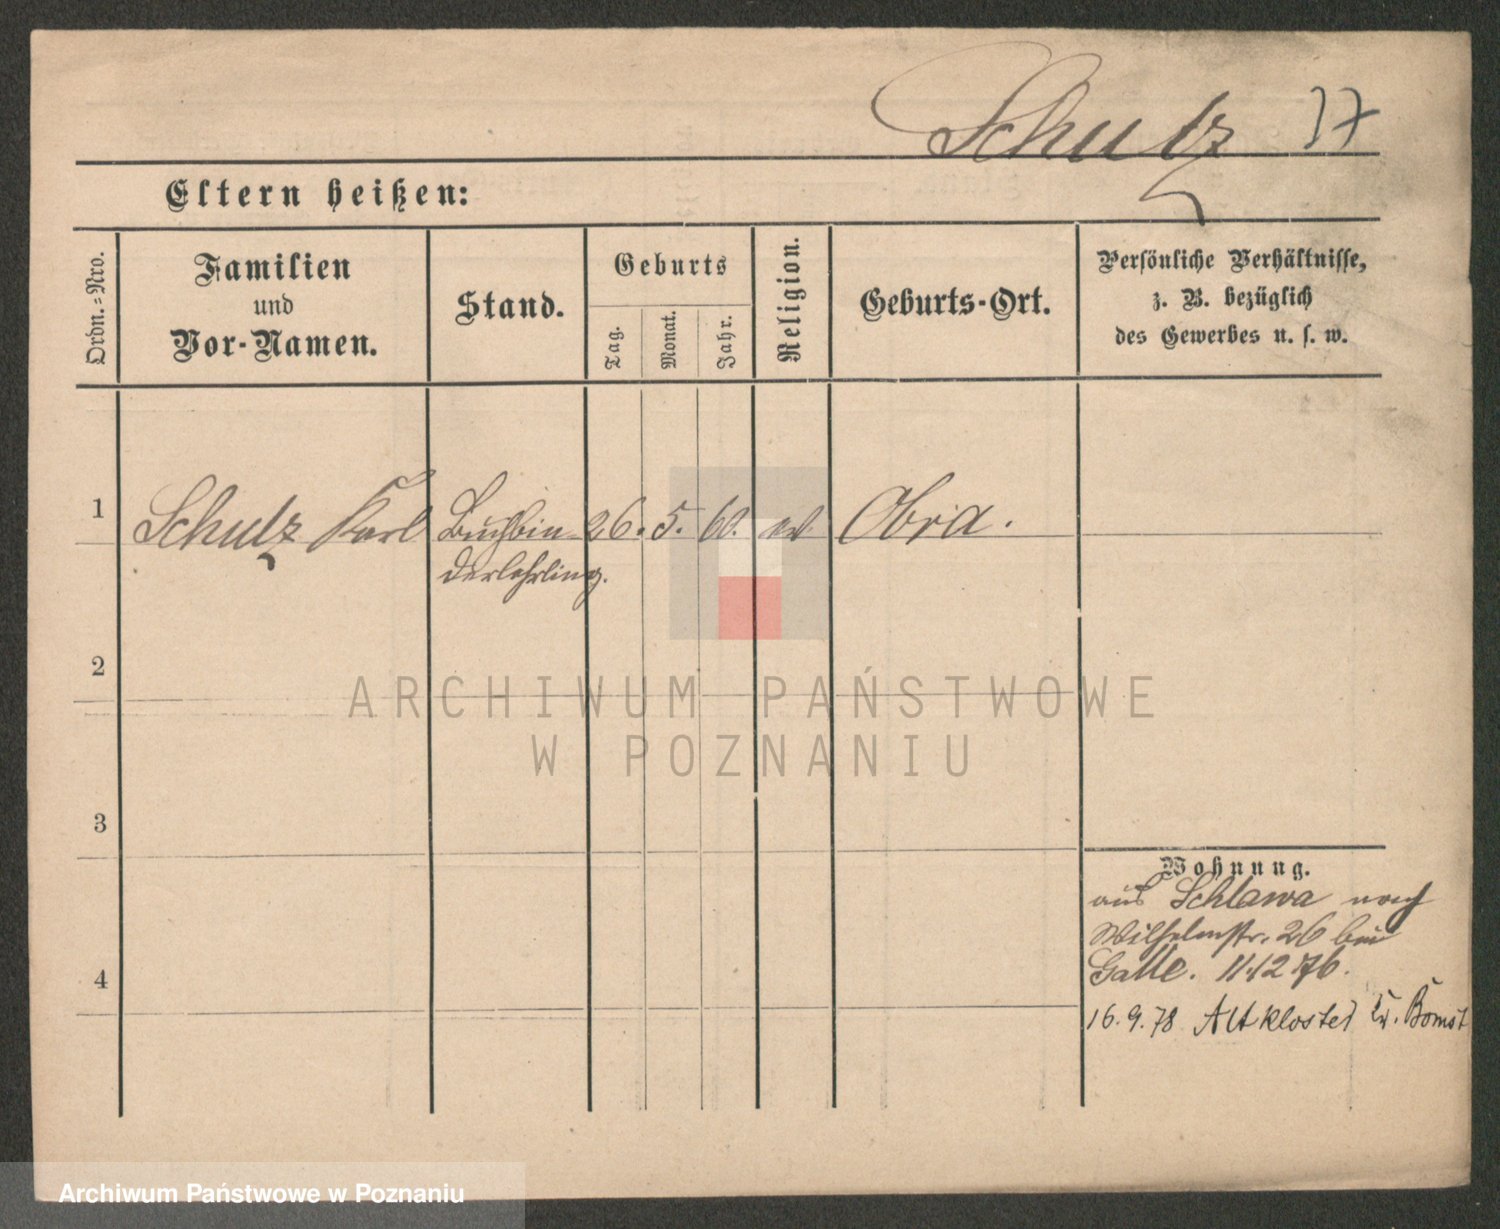 Schulz 17
Eltern heißen:
Ordn.=Nro.
Familien
und
Vor-Namen.
Stand.
Geburts
Tag.
Monat.
Jahr.
Religion.
Geburts-Ort.
Persönliche Verhältnisse,
z. B. bezüglich
des Gewerbes u. s. w.
1 Schulz Karl Buchbin 26. 5. 60. ev Obra.
derlehrling.
2
ARCHIWUM PAŃSTWOWE
W POZNANIU
3
Wohnung.
aus Schlawa nach
Wilhelmstr. 26 bei
11.12 76.
4
16.9.78 Altkloster Kr. Bomst
Archiwum Państwowe w Poznaniu